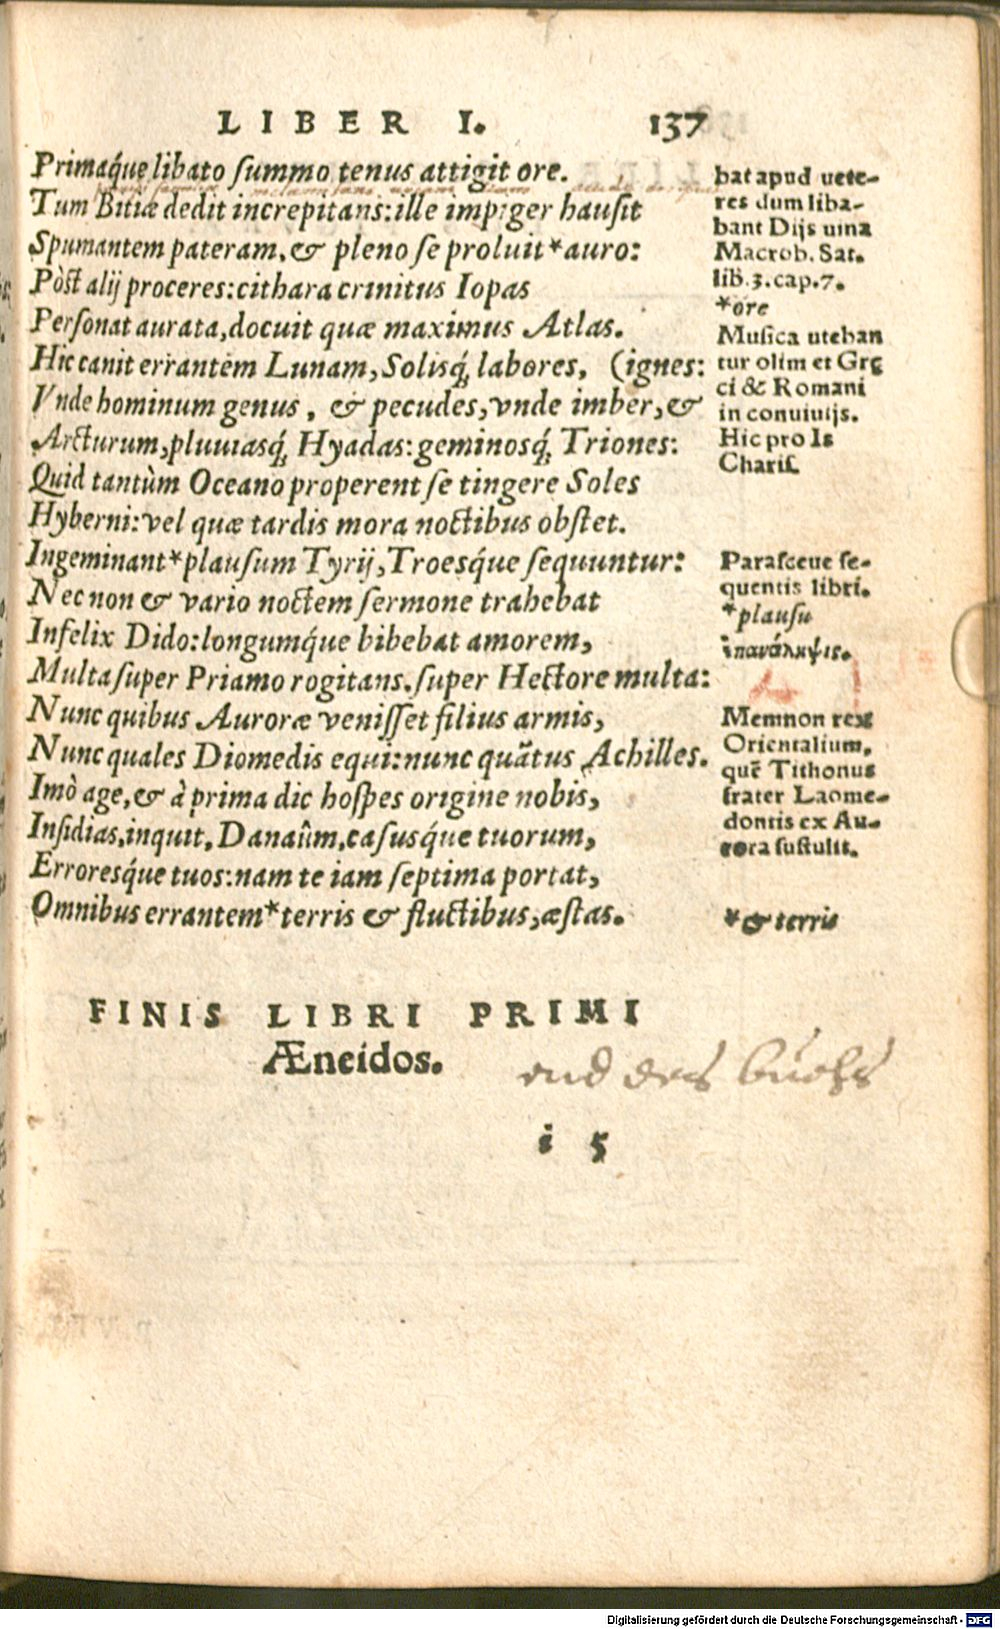 LIBER I. 137
Primaq́ue libato summo tenus attigit ore.
Tum Bitiæ dedit increpitans: ille impiger hausit
Spumantem pateram, & pleno se proluit * auro:
Pòst alij proceres: cithara crinitus Iopas
Personat aurata, docuit quæ maximus Atlas.
Hic canit errantem Lunam, Solisq́; labores, (ignes:
Vnde hominum genus, & pecudes, vnde imber, &
Arcturum, pluuiasq́; Hyadas: geminosq́; Triones:
Quid tantùm Oceano properent se tingere Soles
Hyberni: vel quæ tardis mora noctibus obstet.
Ingeminant * plausum Tyrij, Troesq́ue sequuntur:
Nec non & vario noctem sermone trahebat
Infelix Dido: longumq́ue bibebat amorem,
Multa super Priamo rogitans, super Hectore multa:
Nunc quibus Auroræ venisset filius armis,
Nunc quales Diomedis equi: nunc quãtus Achilles.
Imò age, & à prima dic hospes origine nobis,
Insidias, inquit, Danaûm, casusq́ue tuorum,
Erroresq́ue tuos: nam te iam septima portat,
Omnibus errantem * terris & fluctibus, æstas.
bat apud uete-
res dum liba-
bant Dijs uina
Macrob. Sat.
lib. 3. cap. 7.
*ore
Musica uteban
tur olim et Gręci
ci & Romani
in conuiuijs.
Hic pro Is
Charis.
Parasceue se-
quentis libri.
*plausu
ἐπανάληψις.
Memnon rex
Orientalium,
quē Tithonus
frater Laome-
dontis ex Au-
rora sustulit.
* & terris
FINIS LIBRI PRIMI
Æneidos.
end des buchs
i 5
Digitalisierung gefördert durch die Deutsche Forschungsgemeinschaft - DFG